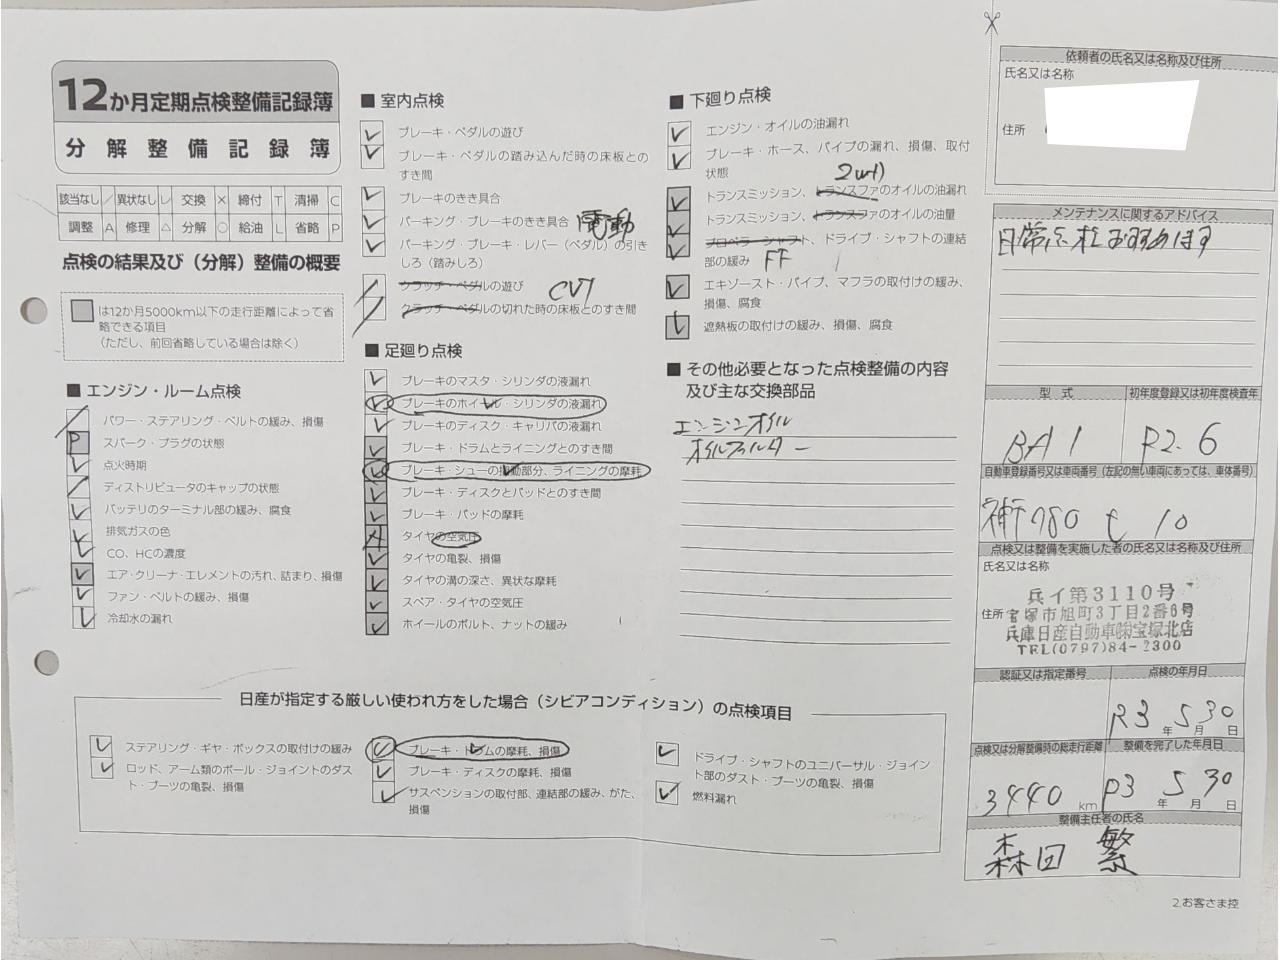 12か月定期点検整備記録簿
分解整備記録簿
該当なし ／ 異状なし レ 交換 × 締付 T 清掃 C
調整 A 修理 △ 分解 ○ 給油 L 省略 P
点検の結果及び（分解）整備の概要
は12か月5000km以下の走行距離によって省
略できる項目
（ただし、前回省略している場合は除く）
■ エンジン・ルーム点検
パワー・ステアリング・ベルトの緩み、損傷
P スパーク・プラグの状態
点火時期
ディストリビュータのキャップの状態
バッテリのターミナル部の緩み、腐食
排気ガスの色
CO、HCの濃度
エア・クリーナ・エレメントの汚れ、詰まり、損傷
ファン・ベルトの緩み、損傷
冷却水の漏れ
■ 室内点検
ブレーキ・ペダルの遊び
ブレーキ・ペダルの踏み込んだ時の床板との
すき間
ブレーキのきき具合
パーキング・ブレーキのきき具合 電動
パーキング・ブレーキ・レバー（ペダル）の引き
しろ（踏みしろ）
クラッチ・ペダルの遊び CVT
クラッチ・ペダルの切れた時の床板とのすき間
■ 足廻り点検
ブレーキのマスタ・シリンダの液漏れ
ブレーキのホイール・シリンダの液漏れ
ブレーキのディスク・キャリパの液漏れ
ブレーキ・ドラムとライニングとのすき間
ブレーキ・シューの摺動部分、ライニングの摩耗
ブレーキ・ディスクとパッドとのすき間
ブレーキ・パッドの摩耗
A タイヤの空気圧
タイヤの亀裂、損傷
タイヤの溝の深さ、異状な摩耗
スペア・タイヤの空気圧
ホイールのボルト、ナットの緩み
■ 下廻り点検
エンジン・オイルの油漏れ
ブレーキ・ホース、パイプの漏れ、損傷、取付
状態
2WD
トランスミッション、トランスファのオイルの油漏れ
トランスミッション、トランスファのオイルの油量
プロペラ・シャフト、ドライブ・シャフトの連結
部の緩み FF
エキゾースト・パイプ、マフラの取付けの緩み、
損傷、腐食
遮熱板の取付けの緩み、損傷、腐食
■ その他必要となった点検整備の内容
及び主な交換部品
エンジンオイル
オイルフィルター
日産が指定する厳しい使われ方をした場合（シビアコンディション）の点検項目
ステアリング・ギヤ・ボックスの取付けの緩み
ロッド、アーム類のボール・ジョイントのダス
ト・ブーツの亀裂、損傷
ブレーキ・ドラムの摩耗、損傷
ブレーキ・ディスクの摩耗、損傷
サスペンションの取付部、連結部の緩み、がた、
損傷
ドライブ・シャフトのユニバーサル・ジョイン
ト部のダスト・ブーツの亀裂、損傷
燃料漏れ
依頼者の氏名又は名称及び住所
氏名又は名称
住所
メンテナンスに関するアドバイス
日常点検おすすめします
型式 初年度登録又は初年度検査年
BA1 R2.6
自動車登録番号又は車両番号（左記の無い車両にあっては、車体番号）
神戸780 せ 10
点検又は整備を実施した者の氏名又は名称及び住所
氏名又は名称
兵イ第3110号
住所 宝塚市旭町3丁目2番6号
兵庫日産自動車㈱宝塚北店
TEL(0797)84-2300
認証又は指定番号 点検の年月日
R3年5月30日
点検又は分解整備時の総走行距離 整備を完了した年月日
3440km R3年5月30日
整備主任者の氏名
森田 繁
2.お客さま控